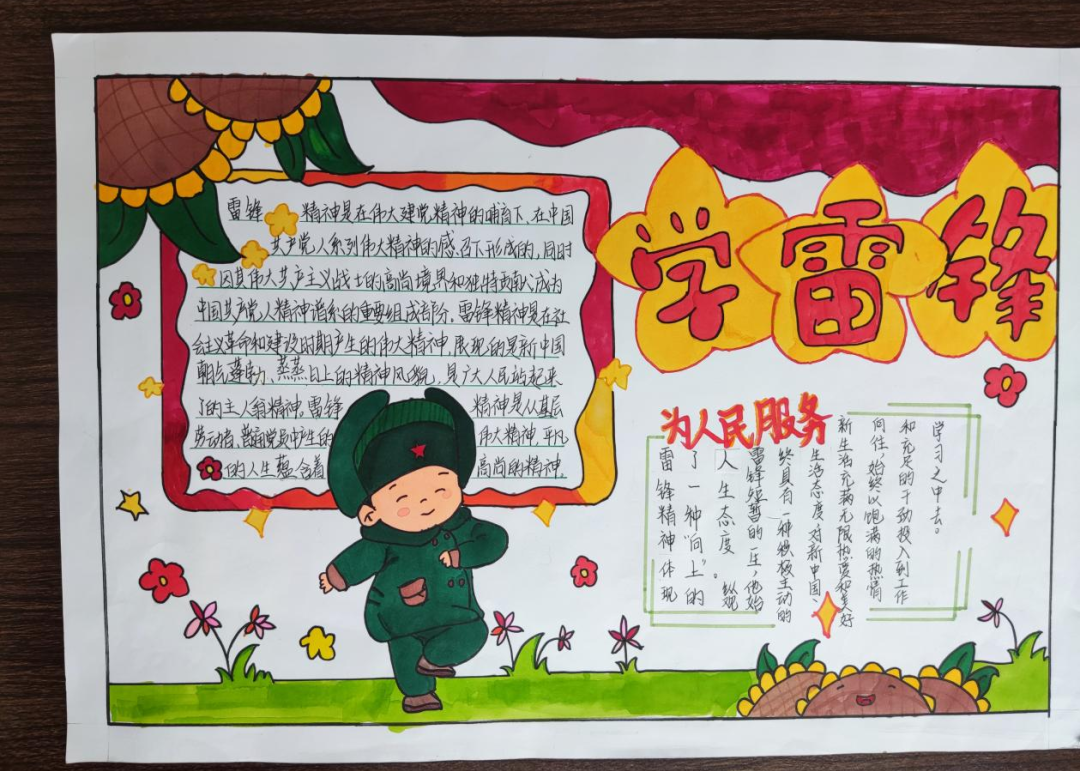 学雷锋
雷锋 精神是在伟大建党精神的哺育下、在中国
共产党人系列伟大精神的感召下形成的,同时
因其伟大共产主义战士的高尚境界和独特贡献成为
中国共产党人精神谱系的重要组成部分。雷锋精神是在社
会主义革命和建设时期产生的伟大精神,展现的是新中国
朝气蓬勃、蒸蒸日上的精神风貌,是广大人民站起来
了的主人翁精神。雷锋 精神是从基层
劳动者、普通党员中产生的 伟大精神,平凡
的人生蕴含着 高尚的精神。
为人民服务
雷锋精神体现
了一种“向上”的
人生态度。纵观
雷锋短暂的一生,他始
终具有一种积极主动的
生活态度,对新中国、
新生活充满无限热爱和美好
向往,始终以饱满的热情
和充足的干劲投入到工作
学习之中去。